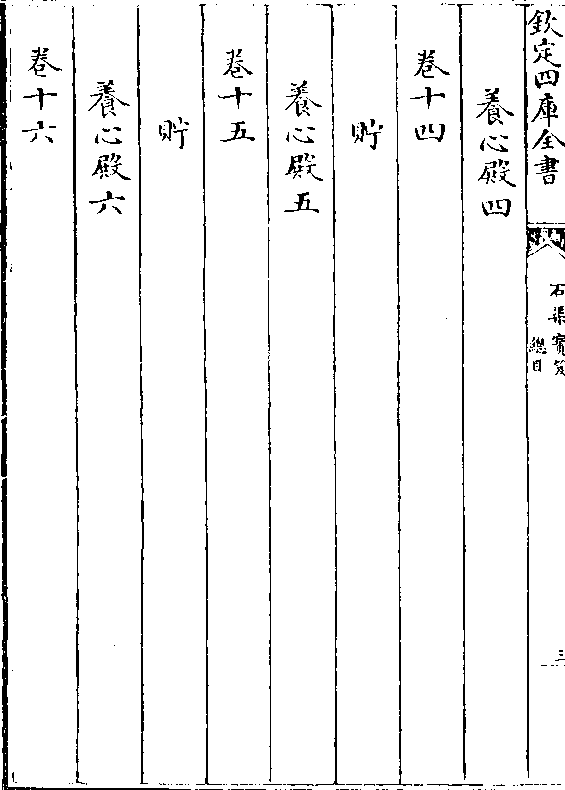 欽定四庫全書
石渠寳笈
總目
三
養心殿四
卷十四
貯
養心殿五
卷十五
貯
養心殿六
卷十六